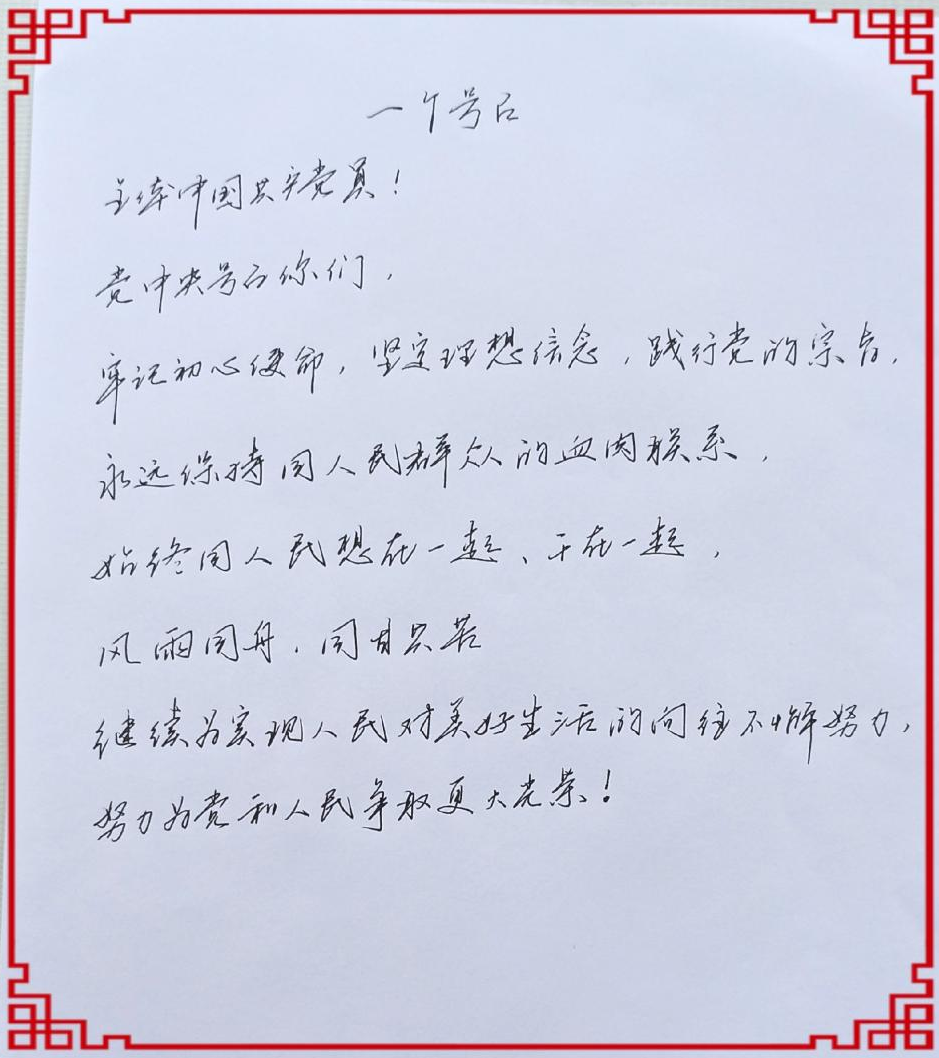 一个号召
全体中国共产党员！
党中央号召你们，
牢记初心使命，坚定理想信念，践行党的宗旨，
永远保持同人民群众的血肉联系，
始终同人民想在一起、干在一起，
风雨同舟、同甘共苦
继续为实现人民对美好生活的向往不懈努力，
努力为党和人民争取更大光荣！